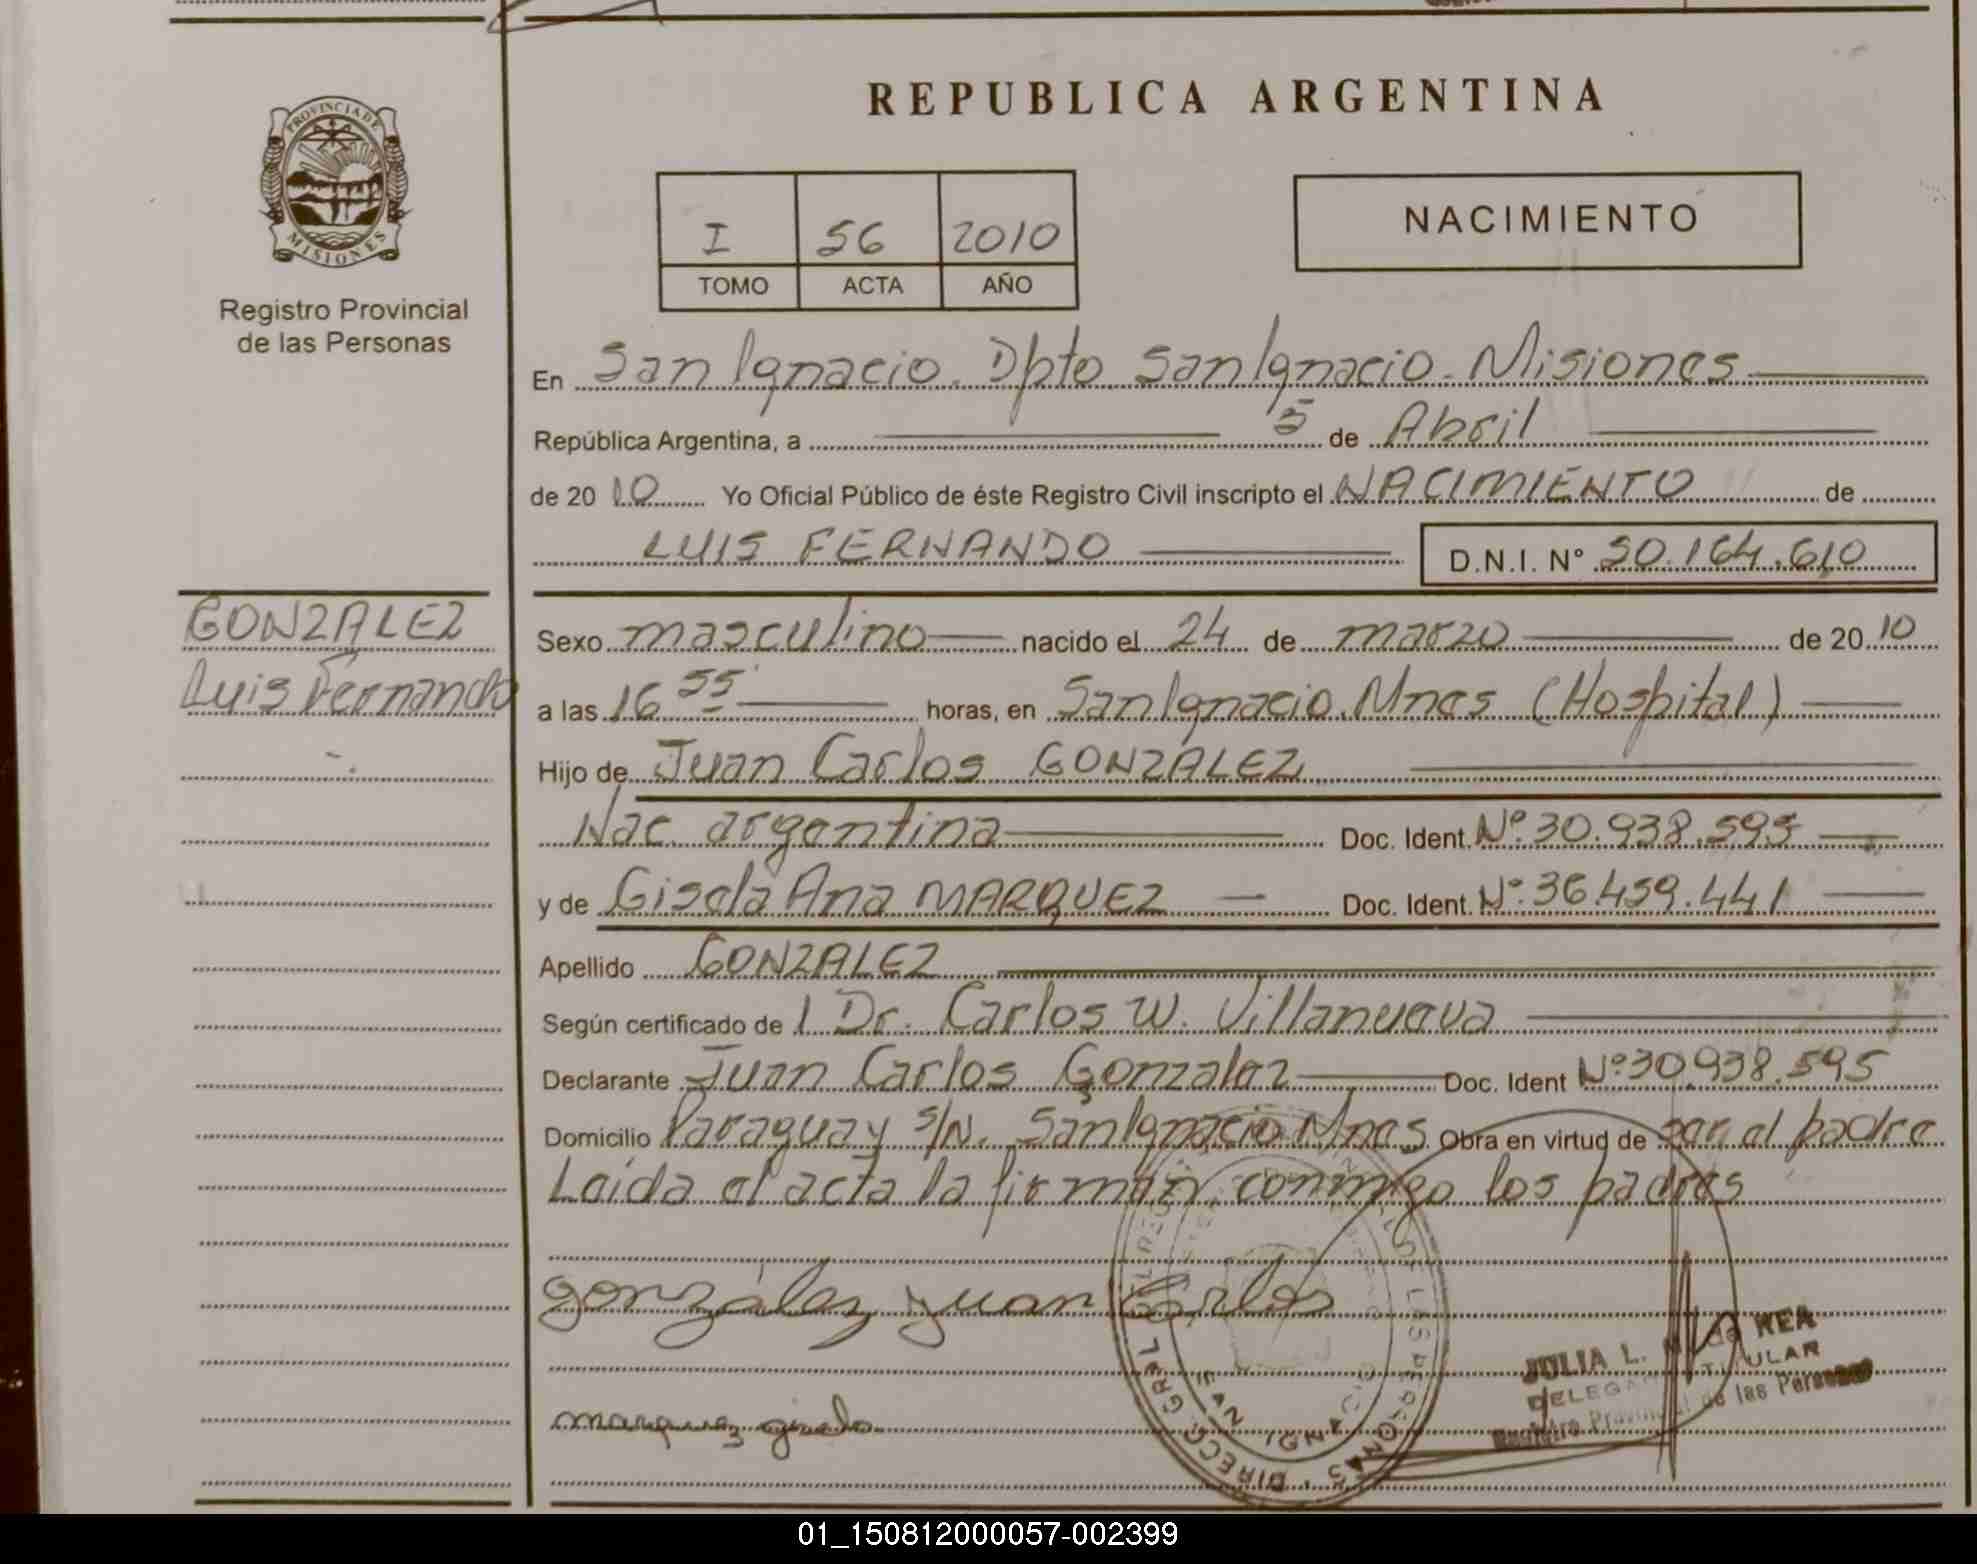 REPUBLICA ARGENTINA
PROVINCIA DE
MISIONES
Registro Provincial
de las Personas
I 56 2010
TOMO ACTA AÑO
NACIMIENTO
En San Ignacio. Dpto San Ignacio. Misiones
República Argentina, a 5 de Abril
de 20 10 Yo Oficial Público de éste Registro Civil inscripto el NACIMIENTO de
LUIS FERNANDO D.N.I. N° 50.164.610
GONZALEZ
Luis Fernando
Sexo masculino nacido el 24 de marzo de 20 10
a las 16 55 horas, en San Ignacio. Mnes (Hospital)
Hijo de Juan Carlos GONZALEZ
Nac. argentina Doc. Ident. Nº. 30.938.595
y de Gisela Ana MARQUEZ Doc. Ident. Nº: 36.459.441
Apellido GONZALEZ
Según certificado de l Dr. Carlos W. Villanueva
Declarante Juan Carlos Gonzalez Doc. Ident Nº: 30.938.595
Domicilio Paraguay s/N. San Ignacio Mnes Obra en virtud de ser el padre
Leída el acta la firman conmigo los padres
gonzález juan Carlos
JULIA L. de REA
DELEGADA TITULAR
Registro Provincial de las Personas
marquez gisela
SAN IGNACIO
01_150812000057-002399